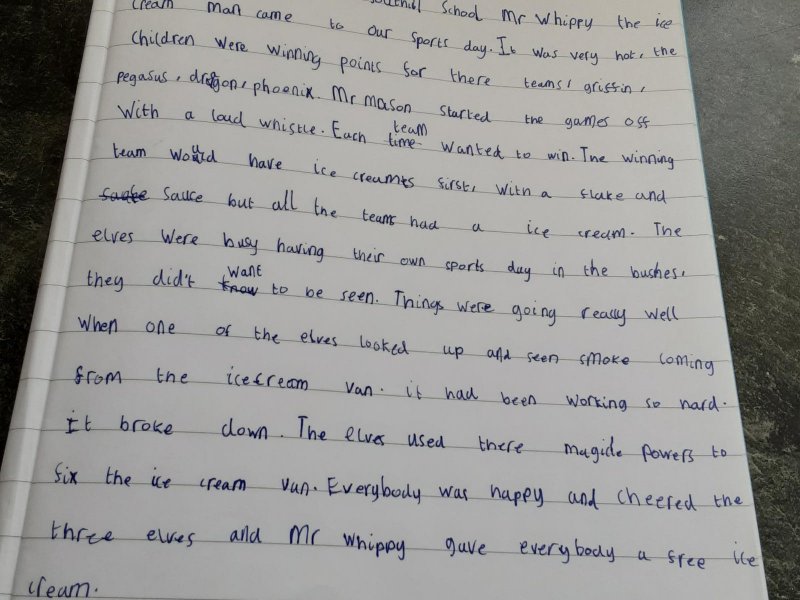 cream man came to our sports day. It was very hot, the
School Mr Whippy the ice
children were winning points for there teams, griffin,
pegasus, dragon, phoenix. Mr Mason started the games off
With a loud whistle. Each time team wanted to win. The winning
team would have ice creams first, with a flake and
sauce but all the teams had a ice cream. The
elves were busy having their own sports day in the bushes,
they did't know want to be seen. Things were going really well
when one of the elves looked up and seen smoke coming
from the icecream van. it had been working so hard.
It broke down. The elves used there magide powers to
fix the ice cream van. Everybody was happy and cheered the
three elves and Mr Whippy gave everybody a free ice
cream.